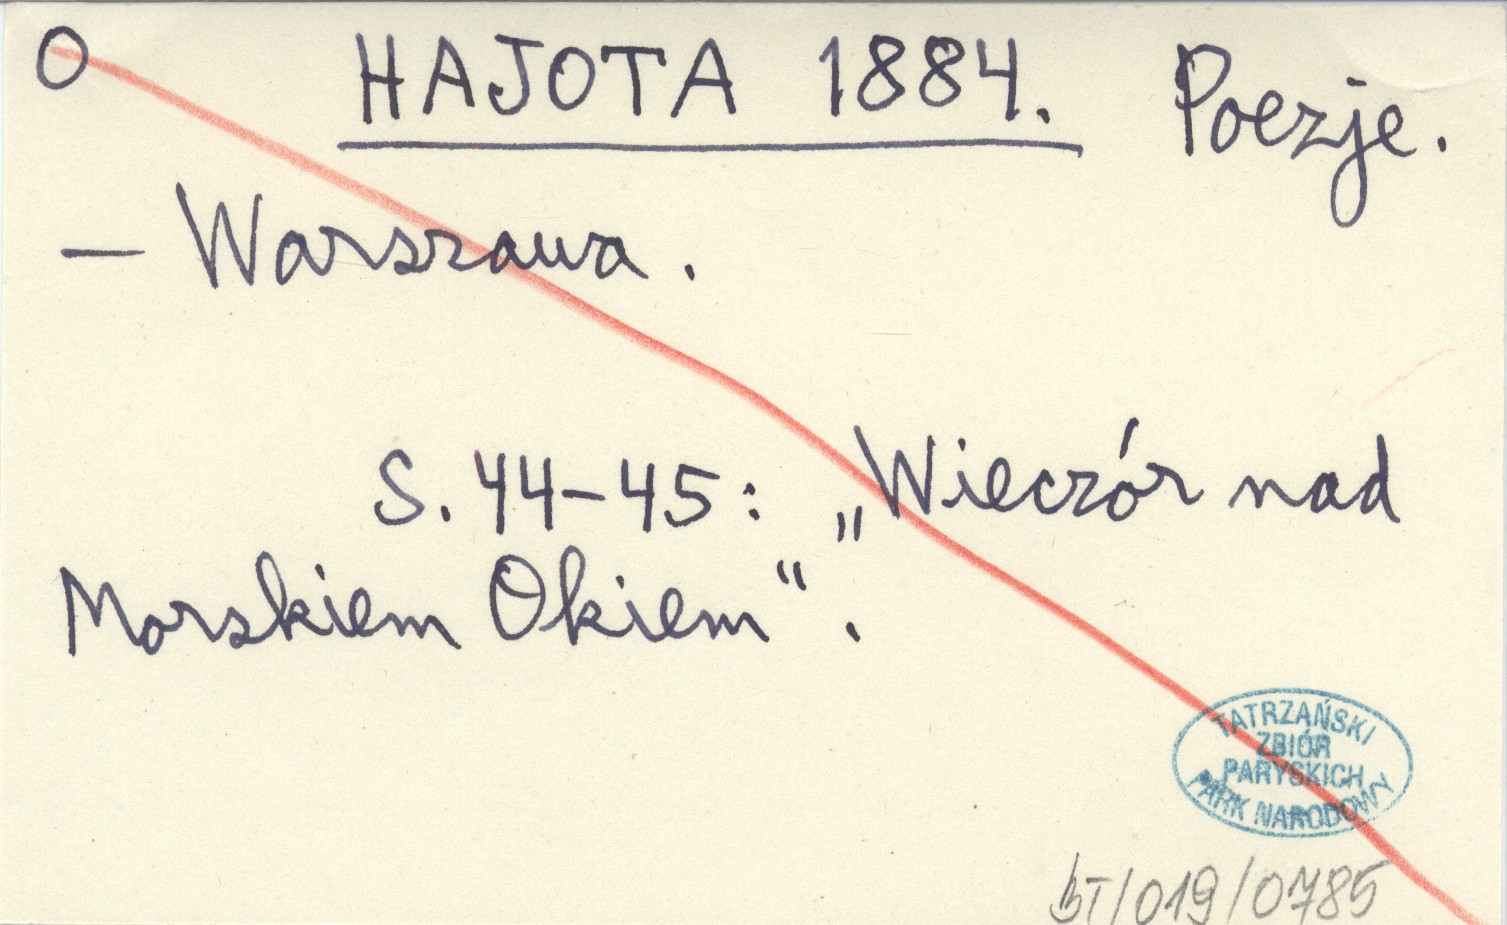 O HAJOTA 1884. Poezje.
— Warszawa.
S. 44-45: „Wieczór nad
Morskiem Okiem“.
TATRZAŃSKI
ZBIÓR
PARYSKICH
PARK NARODOWY
BT/019/0785